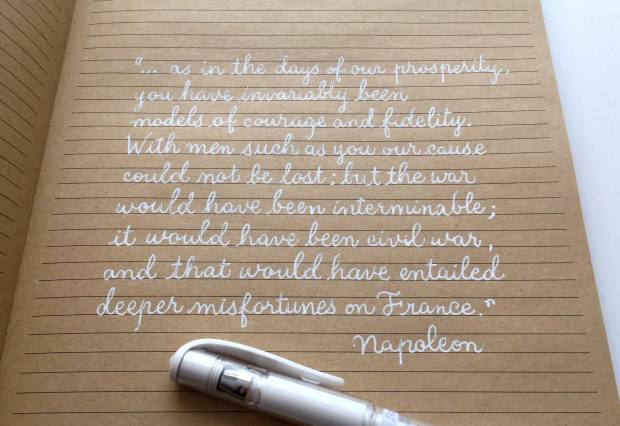 "... as in the days of our prosperity,
you have invariably been
models of courage and fidelity.
With men such as you our cause
could not be lost; but the war
would have been interminable;
it would have been civil war,
and that would have entailed
deeper misfortunes on France."
Napoleon